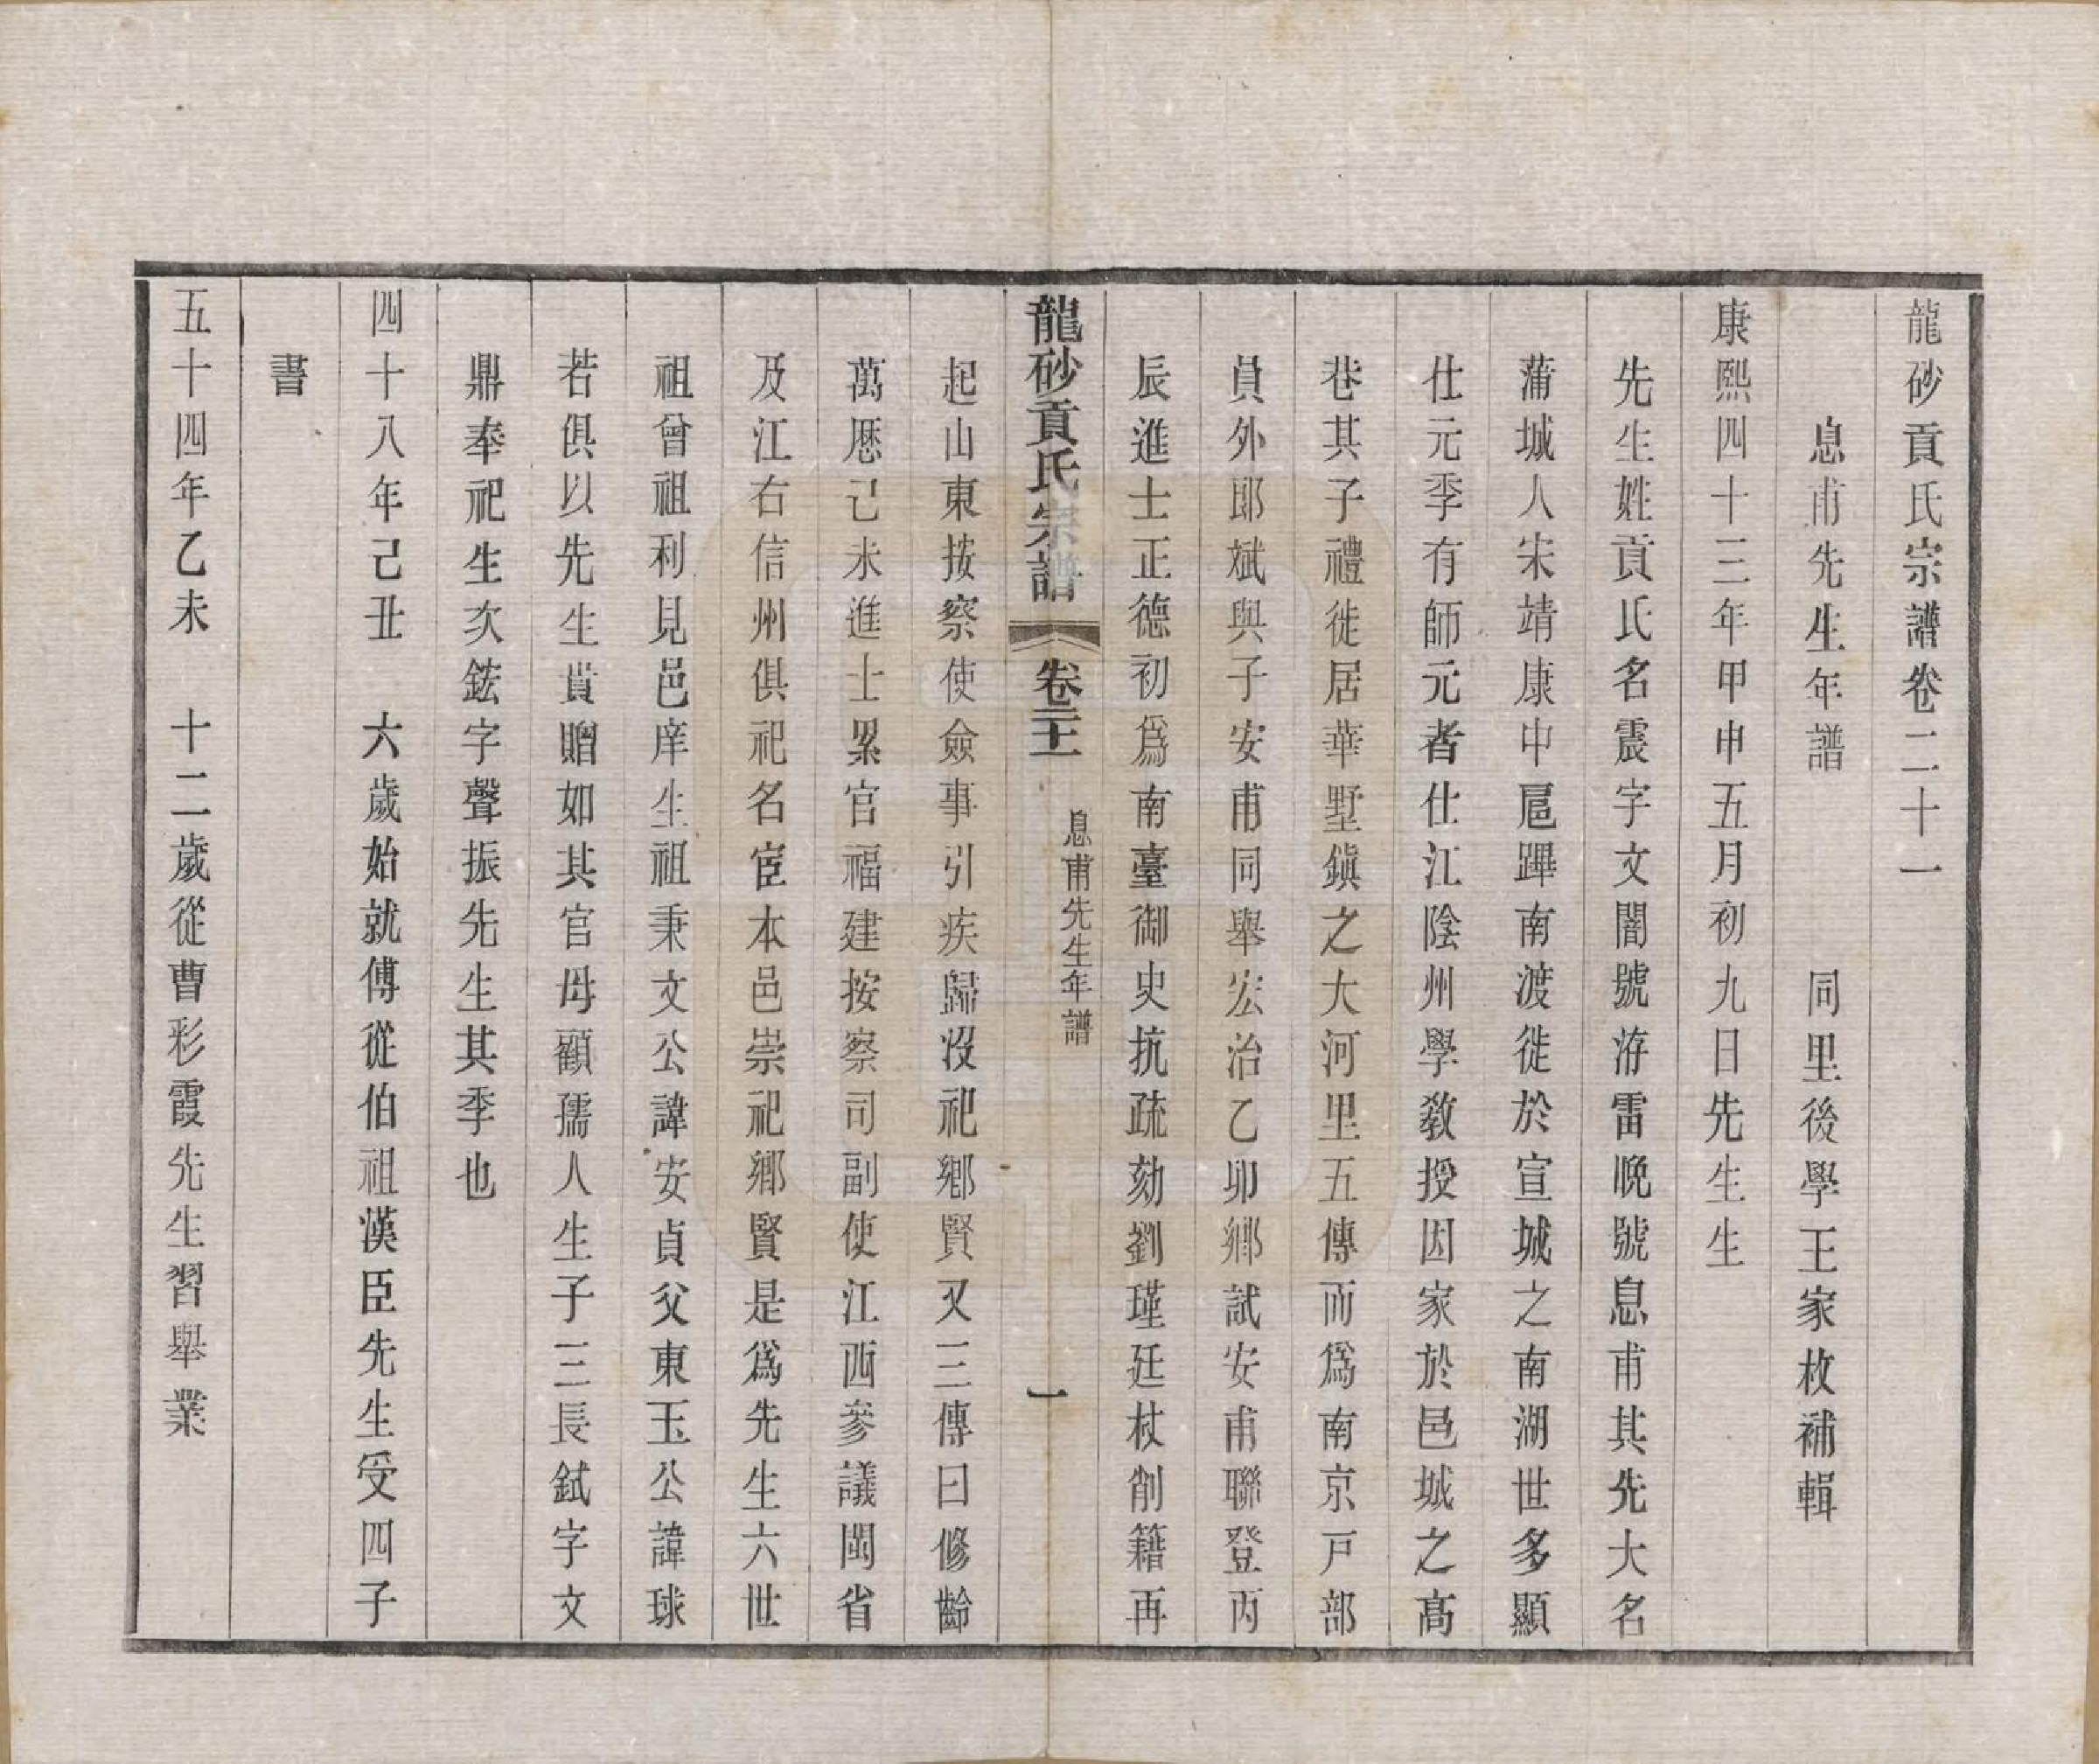 龍砂貢氏宗譜卷二十一
息甫先生年譜　同里後學王家枚補輯
康熙四十三年甲申五月初九日先生生
先生姓貢氏名震字文闇號洊雷晚號息甫其先大名
蒲城人宋靖康中扈蹕南渡徙於宣城之南湖世多顯
仕元季有師元者仕江陰州學教授因家於邑城之高
巷其子禮徙居華墅鎭之大河里五傳而爲南京戸部
員外郞斌與子安甫同舉宏治乙卯鄕試安甫聯登丙
辰進士正德初爲南臺御史抗疏劾劉瑾廷杖削籍再
龍砂貢氏宗譜　卷二十一　息甫先生年譜　一
起山東按察使僉事引疾歸沒祀鄕賢又三傳曰修齡
萬厯己未進士累官福建按察司副使江西參議閩省
及江右信州俱祀名宦本邑崇祀鄕賢是爲先生六世
祖曾祖利見邑庠生祖秉文公諱安貞父東玉公諱球
若俱以先生貴贈如其官母顧孺人生子三長鉽字文
鼎奉祀生次鋐字聲振先生其季也
四十八年己丑　六歲始就傅從伯祖漢臣先生受四子
書
五十四年乙未　十二歲從曹彩霞先生習舉業